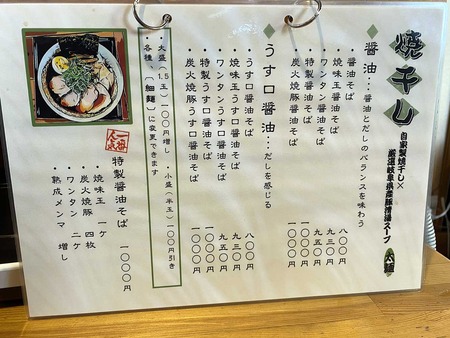 焼干し
自家製焼干し×
厳選岐阜県産豚清湯スープ
太麺
◆醤油…醤油とだしのバランスを味わう
醤油そば 八〇〇円
焼味玉醤油そば 九三〇円
ワンタン醤油そば 九五〇円
特製醤油そば 一〇〇〇円
炭火焼豚醤油そば 一〇〇〇円
◆うす口醤油…だしを感じる
うす口醤油そば 八〇〇円
焼味玉うす口醤油そば 九三〇円
ワンタンうす口醤油そば 九五〇円
特製うす口醤油そば 一〇〇〇円
炭火焼豚うす口醤油そば 一〇〇〇円
・大盛(1.5玉)一〇〇円増し ・小盛(半玉)一〇〇円引き
・各種【細麺】に変更できます
一番人気
特製醤油そば 一〇〇〇円
・焼味玉 一ケ
・炭火焼豚 四枚
・ワンタン 二ケ
・熟成メンマ 増し